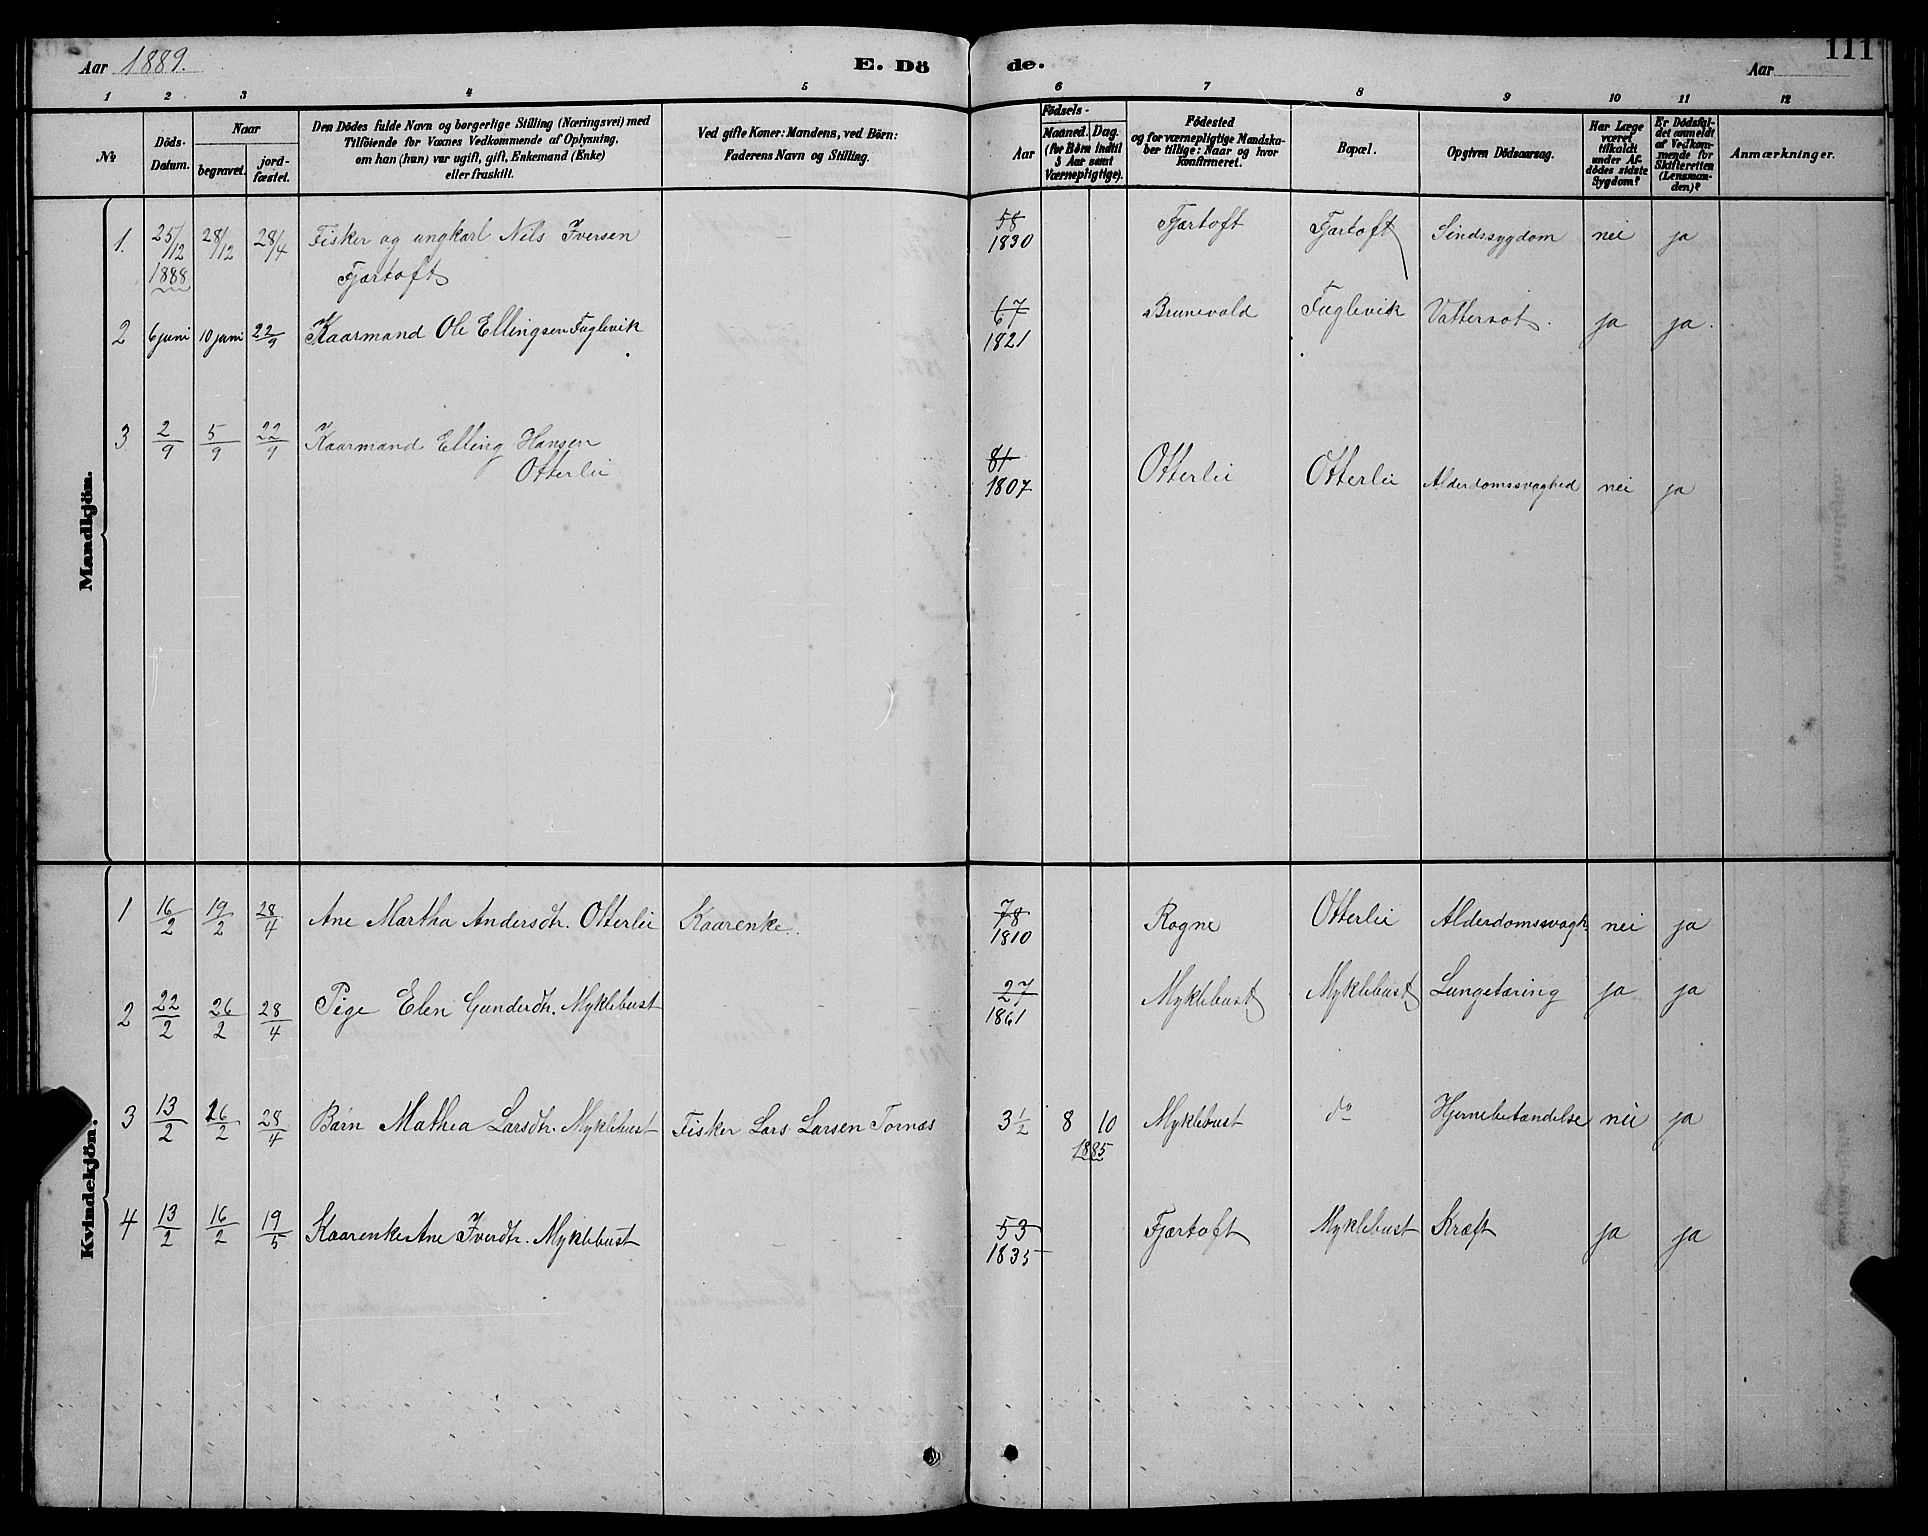 Aar 1889. E. Dö de. Aar 111
1 2 3 4 5 6 7 8 9 10 11 12
№
Döds-
Datum.
Naar
begravet.
jord-
fæstet.
Den Dödes fulde Navn og borgerlige Stilling (Næringsvei) med
Tilföiende for Voxnes Vedkommende af Oplysning,
om han (hun) var ugift, gift, Enkemand (Enke)
eller fraskilt.
Ved gifte Koner: Mandens, ved Börn:
Faderens Navn og Stilling.
Aar
Födsels-
Maaned. Dag.
(for Börn indtil
5 Aar samt
Værnepligtige).
Födested
og for værnepligtige Mandska-
ber tillige: Naar og hvor
konfirmeret.
Bopæl.
Opgiven Dödsaarsag.
Har Læge
været
tilkaldt
under Af-
dödes sidste
Sygdom?
Er Dödsfal-
det anmeldt
af Vedkom-
mende for
Skifteretten
(Lensman-
den)?
Anmærkninger.
Mandkjön.
1. 25/12 1888 28/12 28/4 Fisker og ungkarl Nils Iversen
Fjærtoft
—
58
1830
Fjærtoft Fjærtoft Sindssygdom nei ja
2 6 juni 10 juni 22/9 Kaarmand Ole Ellingsen Fuglevik
67
1821
Brunevold Fuglevik Vattersot. ja ja.
3 2/9 5/9 22/9 Kaarmand Elling Hansen
Otterlei
81
1807
Otterlei Otterlei Alderdomssvaghed nei ja
Kvindekjön.
1 16/2 19/2 28/4 Ane Martha Andersdtr. Otterlei Kaarenke.
78
1810
Rogne Otterlei Alderdomssvagh. nei ja
2 22/2 26/2 28/4 Pige Elen Gunderdtr. Myklebust
27
1861
Myklebust Myklebust Lungetæring ja ja
3 13/2 16/2 28/4 Barn Mathea Larsdtr. Myklebust Fisker Lars Larsen Tornæs
3 1/2 8 10
1885
Myklebust do Hjernebetændelse nei ja
4 13/2 16/2 19/5 Kaarenke Ane Iverdtr. Myklebust
53
1835
Fjærtoft Myklebust Kræft ja ja